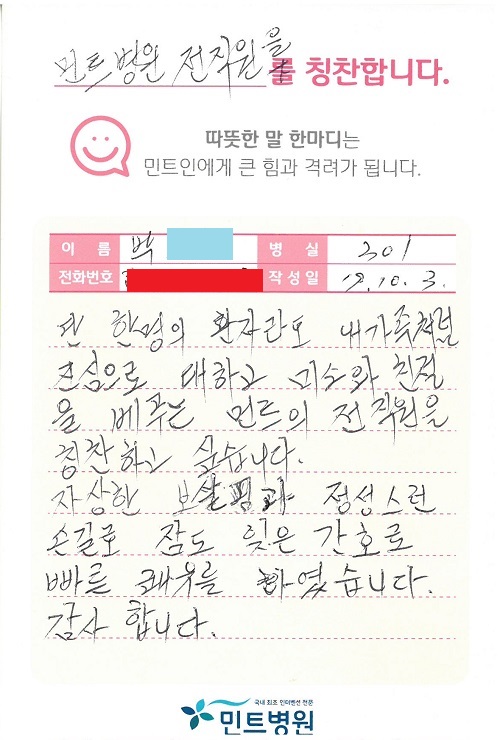 민트병원 전직원을를 칭찬합니다.
따뜻한 말 한마디는
민트인에게 큰 힘과 격려가 됩니다.
이 름 박 병 실 301
전화번호 작성일 19.10.3.
단 한명의 환자라도 내가족처럼
진심으로 대하고 미소와 친절
을 베푸는 민트의 전직원을
칭찬하고 싶습니다.
자상한 보살핌과 정성스런
손길로 잠도 잊은 간호로
빠른 쾌유를 하였습니다.
감사 합니다.
국내 최초 인터벤션 전문
민트병원